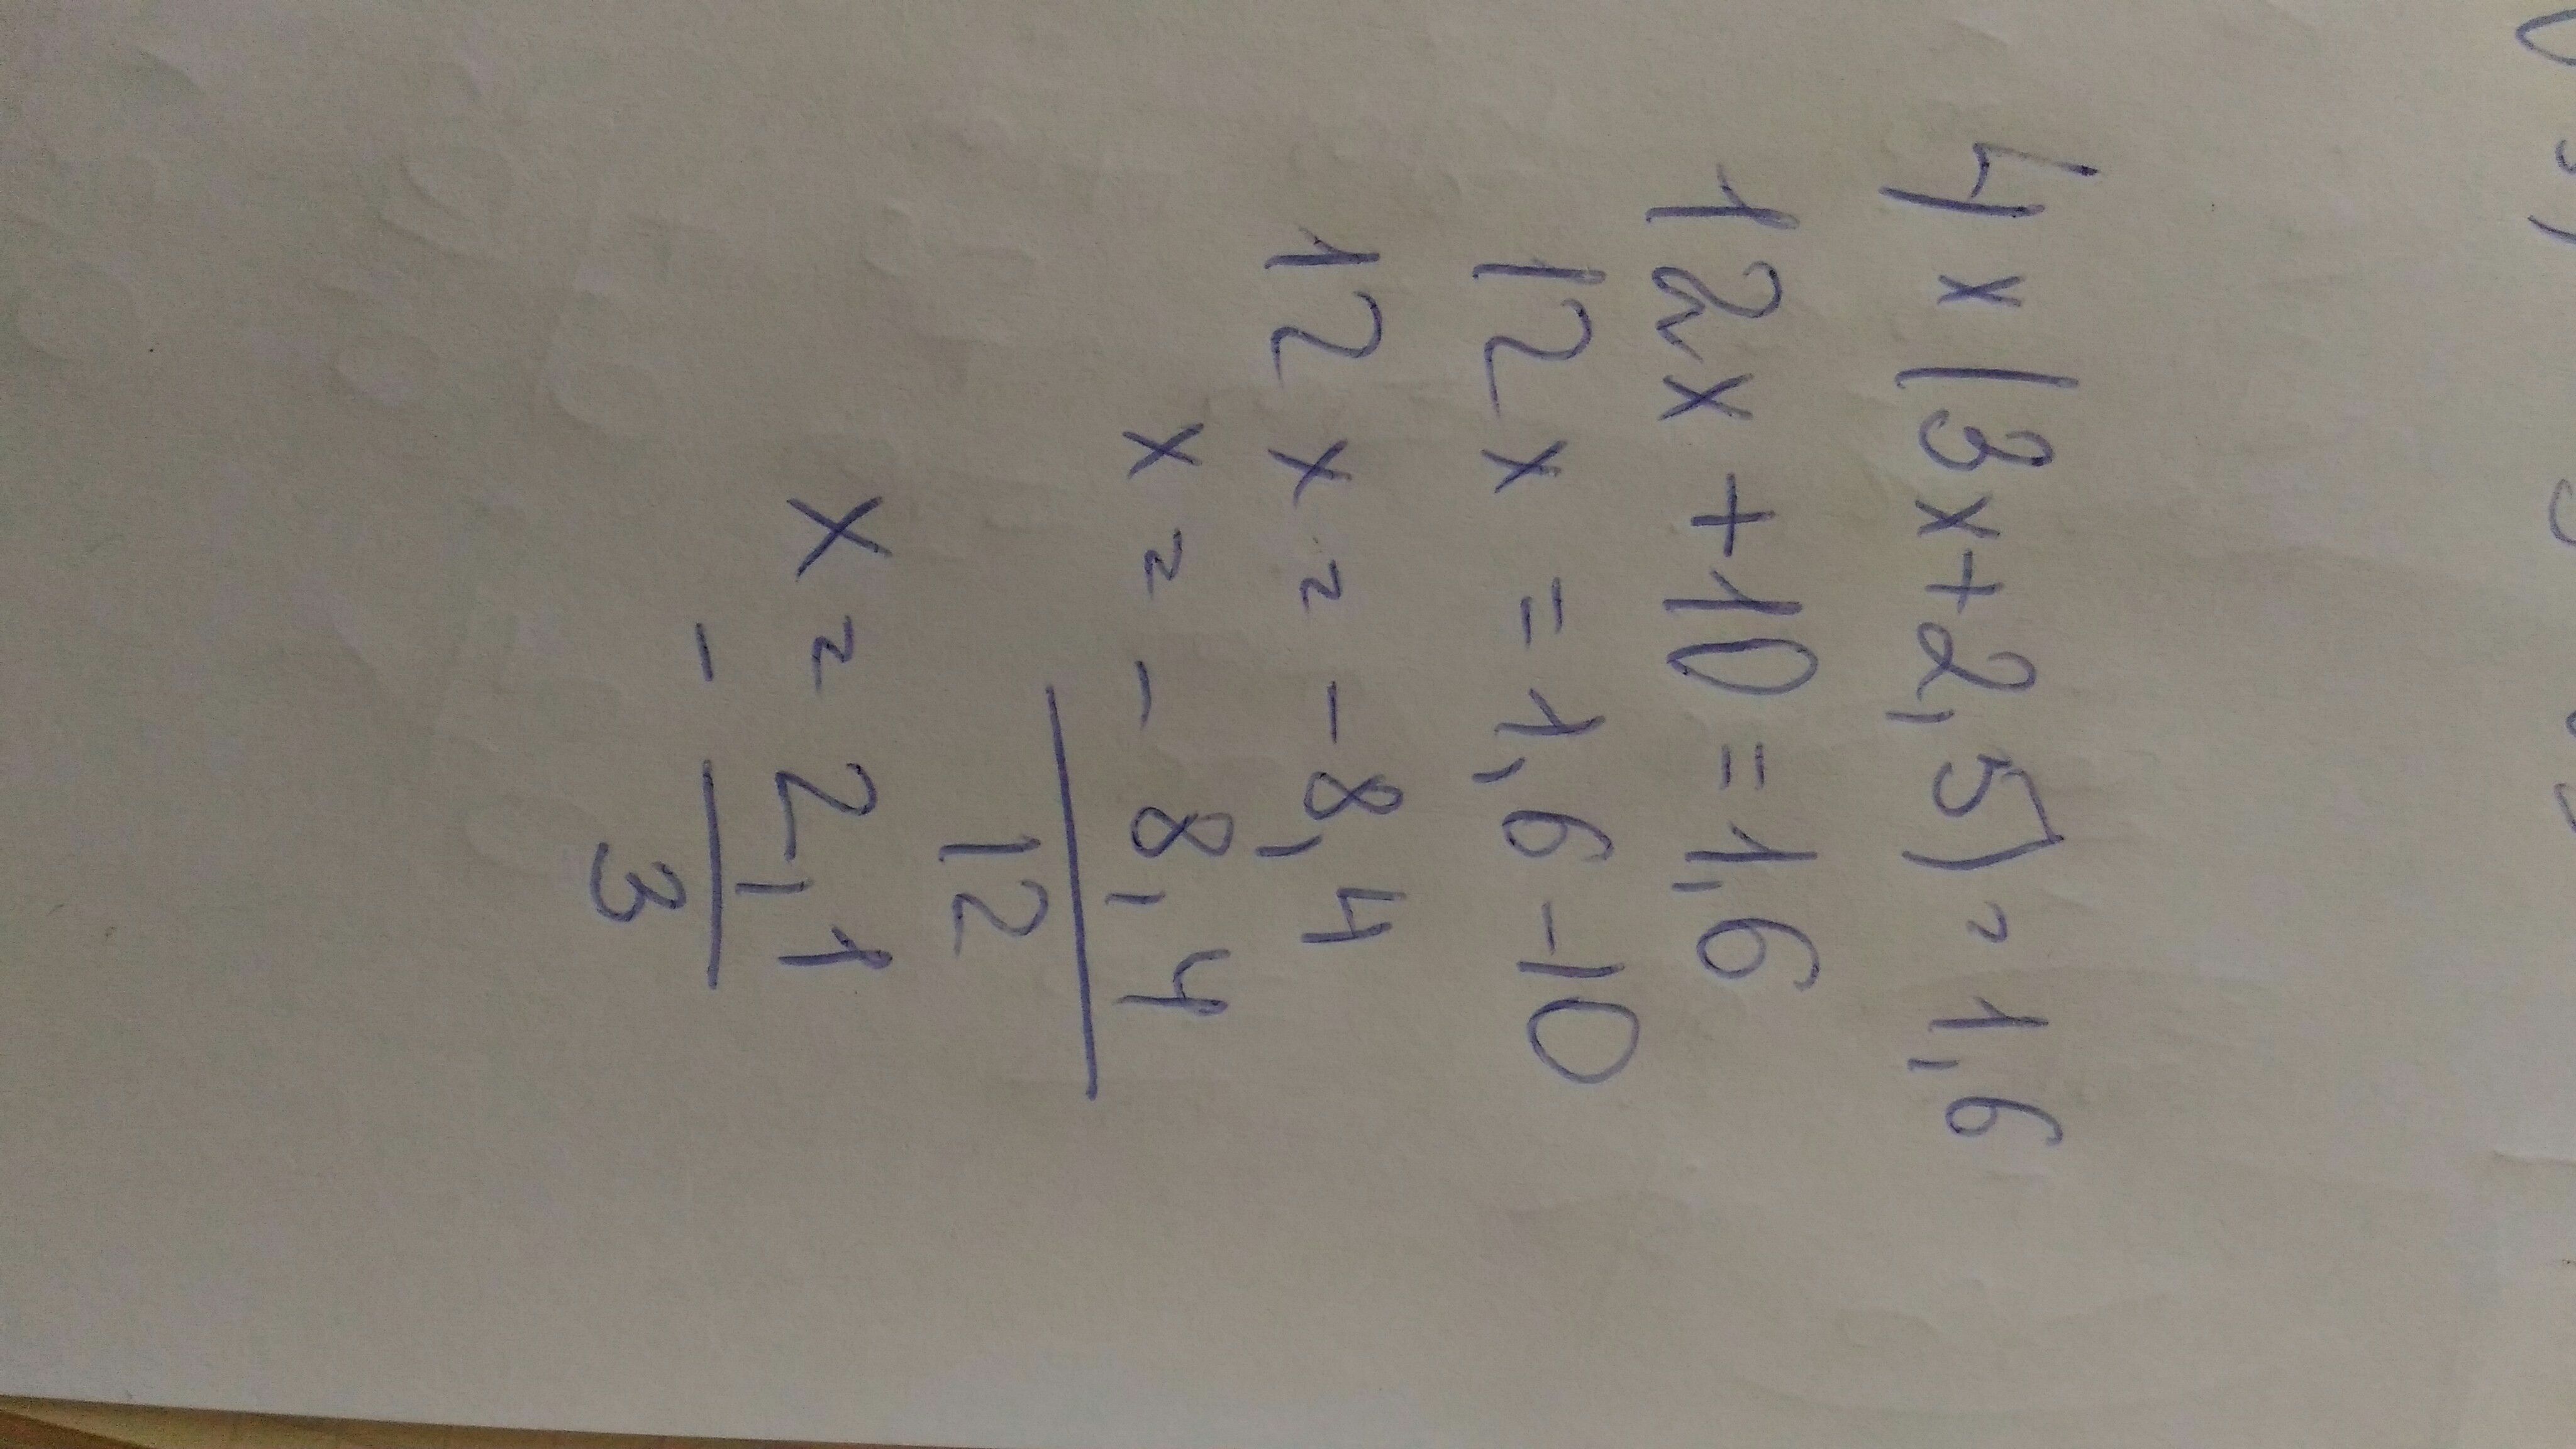 4 x (3x+2,5) = 1,6
12x +10 = 1,6
12x = 1,6 -10
12 x = -8,4
x = - 8,4
12
x = 2,1
- 3